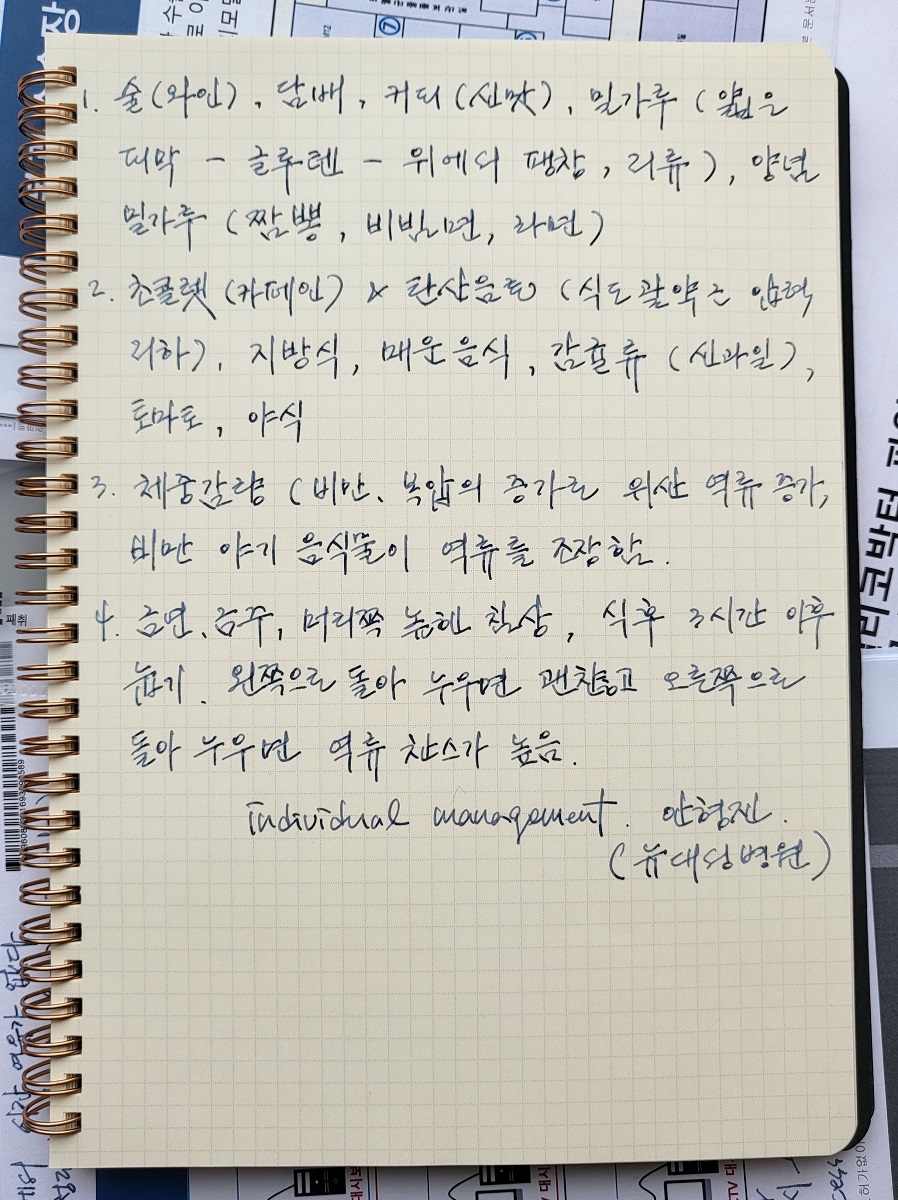 1. 술(와인), 담배, 커피(신맛), 밀가루 (얇은
피막 - 글루텐 - 위에서 팽창, 리류), 양념
밀가루 (짬뽕, 비빔면, 라면)
2. 초콜렛 (카페인) & 탄산음료 (식도괄약근 압력
저하), 지방식, 매운음식, 감귤류 (신과일),
토마토, 야식
3. 체중감량 (비만, 복압의 증가로 위산 역류 증가,
비만 야기 음식물이 역류를 조장함.
4. 금연, 금주, 머리쪽 높힌 침상, 식후 3시간 이후
눕기. 왼쪽으로 돌아 누우면 괜찮고 오른쪽으로
돌아 누우면 역류 찬스가 높음.
individual management. 안형진.
(뉴대성병원)